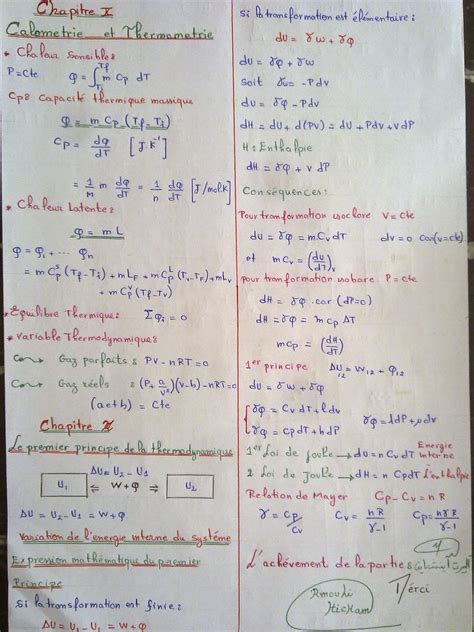 Chapitre I
Calometrie et Thermometrie
* Chaleur Sensible :
P=Cte Q = ∫_{Ti}^{Tf} m Cp dT
Cp : Capacité thermique massique
Q = m Cp (Tf - Ti)
Cp = dQ/dT [J.K⁻¹]
= 1/m m dQ/dT = 1/n dQ/dT [J/mol.K]
* Chaleur Latente :
Q = m L
Q = Q₁ + ... Qn
+ m Cp^v (Tf - Tv)
* Equilibre Thermique : ΣQi = 0
* Variable Thermodynamique :
Gaz parfaits : PV - nRT = 0
Gaz réels : (P + a/v²)(v-b) - nRT = 0
(a et b) = Cte
Chapitre 2
Le premier principe de la thermodynamique
ΔU = U₂ - U₁
U₁ ⇐ W + Q ⇒ U₂
ΔU = U₂ - U₁ = W + Q
Variation de l'énergie interne du système
Expression mathématique du premier
Principe
Si la transformation est finie :
ΔU = U₂ - U₁ = W + Q
Si la transformation est élémentaire :
dU = δW + δQ
dU = δQ + δW
soit δW = -Pdv
dU = δQ - Pdv
dH = dU + d(PV) = dU + Pdv + vdP
H : Enthalpie
dH = δQ + v dP
Conséquences :
Pour transformation isochore V = Cte
dU = δQ = m Cv dT dv = 0 Car (v = cte)
et m Cv = (dU/dT)v
pour transformation isobare P = Cte
dH = δQ . car (dP=0)
dH = δQ = m Cp ΔT
m Cp = (dH/dT)
1er principe ΔU₁₂ = W₁₂ + Q₁₂
dU = δW + δQ
δQ = Cv dT + ldv
δQ = Cp dT + hdP
1er Loi de Joule → dU = n Cv dT Energie interne
2 Loi de Joule → dH = n Cp dT L'enthalpie
Relation de Mayer Cp - Cv = n R
γ = Cp/Cv Cv = nR/γ-1 Cp = γnR/γ-1
L'achévement de la partie
Merci
Rmouki
Hicham